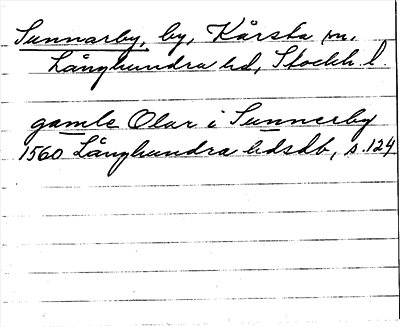 Sunnarby, by, Kårsta sn.
Långhundra hd, Stockh. l.
gamle Olar i Sunnerby
1560 Långhundra hdsdb, s. 124